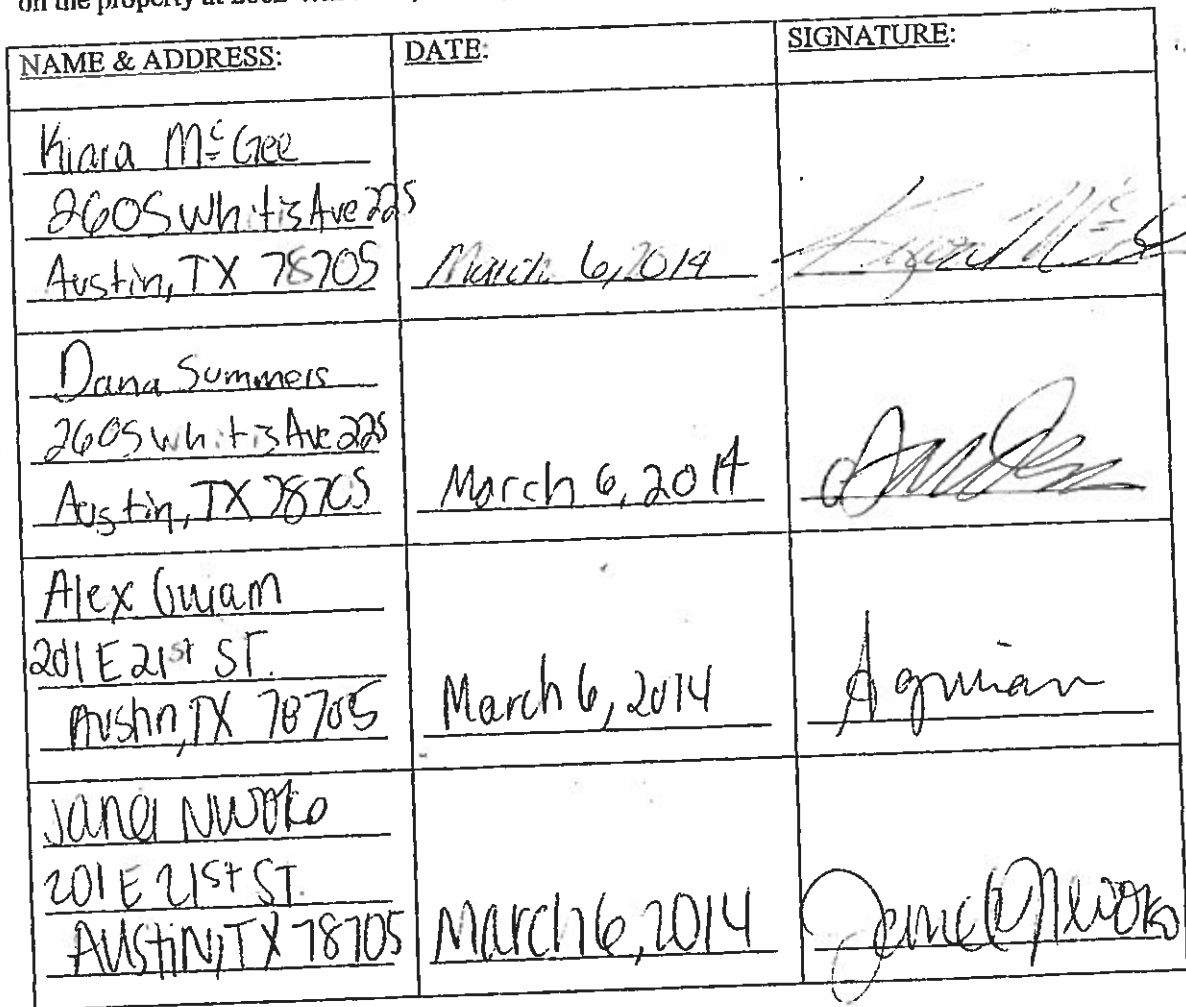 on the property at
NAME & ADDRESS: DATE: SIGNATURE:
Kiara McGee
2605 Whitis Ave 225
Austin, TX 78705 March 6, 2014
Dana Summers
2605 Whitis Ave 225
Austin, TX 78705 March 6, 2014
Alex
201 E 21st ST.
Austin, TX 78705 March 6, 2014
Nwoko
201 E 21st ST.
AUStiN, TX 78705 March 6, 2014